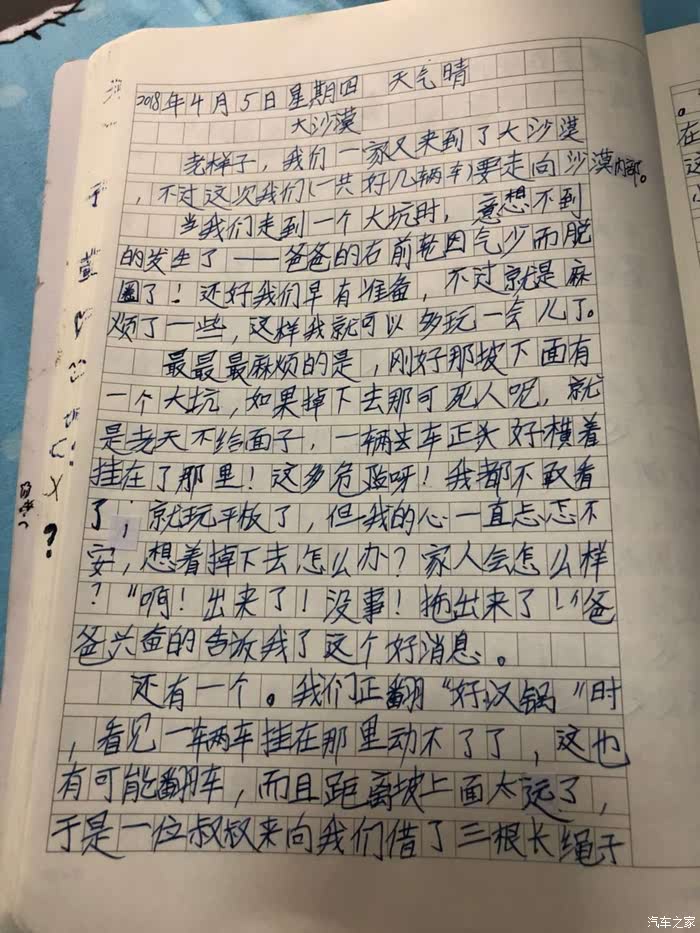 2018年4月5日星期四 天气晴
大沙漠
老样子，我们一家又来到了大沙漠
，不过这次我们(一共好几辆车)要走向沙漠内部。
当我们走到一个大坑时，意想不到
的发生了——爸爸的右前轮因气少而脱
圈了！还好我们早有准备，不过就是麻
烦了一些，这样我就可以多玩一会儿了。
最最最麻烦的是，刚好那坡下面有
一个大坑，如果掉下去那可死人呢，就
是老天不给面子，一辆去车正头好横着
挂在了那里！这多危险呀！我都不敢看
了，就玩平板了，但我的心一直忐忑不
安，想着掉下去怎么办？家人会怎么样
？“啊！出来了！没事！拖出来了！”爸
爸兴奋的告诉我了这个好消息。
还有一个。我们正翻“好汉锅”时
，看见一车辆车挂在那里动不了了，这也
有可能翻车，而且距离坡上面太远了，
于是一位叔叔来向我们借了三根长绳子
？
。
在
这
汽车之家